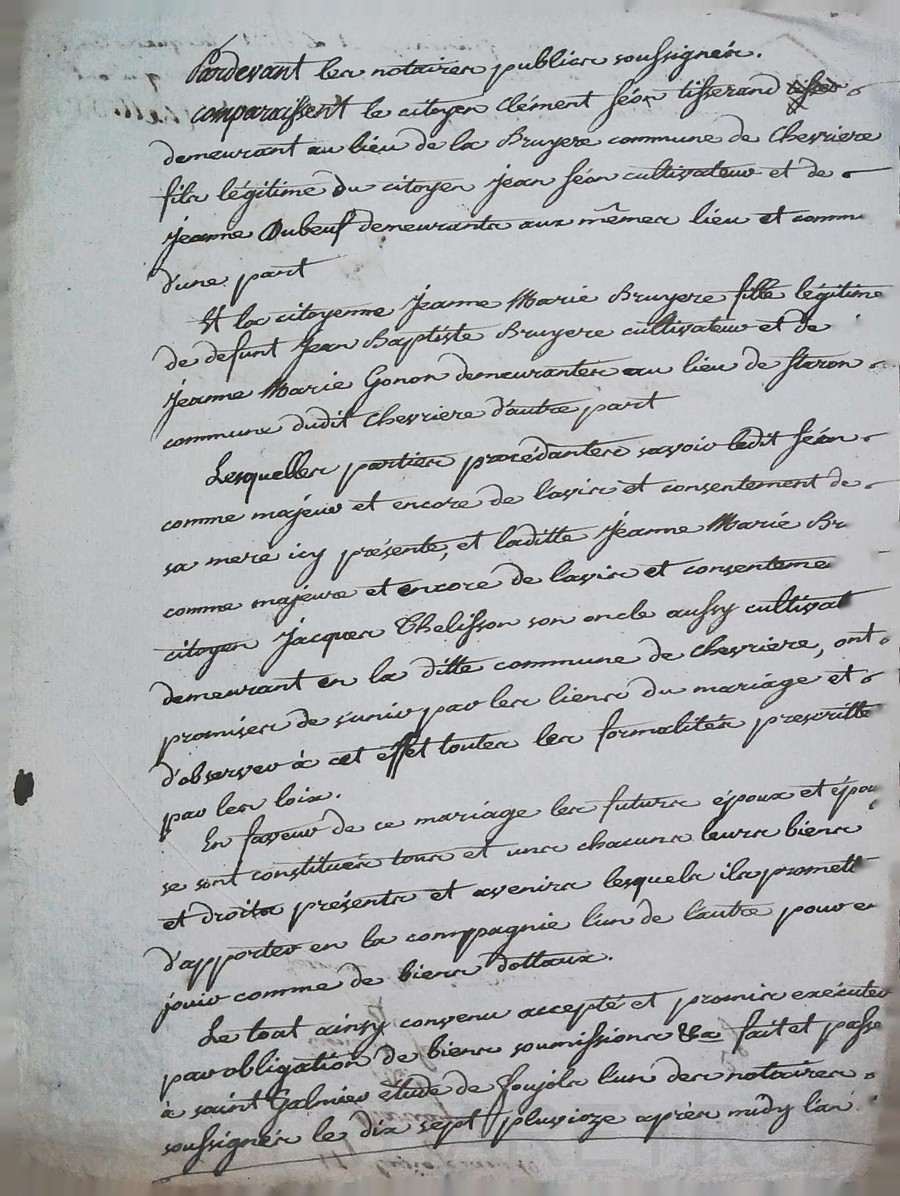 Pardevant les notaires publics soussignés.
comparaissent le citoyen Clément Séon tisserand
demeurant au lieu de la Bruyere commune de Chevriere
fils légitime du citoyen Jean Séon cultivateur et de
Jeanne Dubeuf demeurants aux mêmes lieu et comm
d'une part
Et la citoyenne Jeanne Marie Bruyere fille légitime
de defunt Jean Baptiste Bruyere cultivateur et de
Jeanne Marie Gonon demeurantes au lieu de Staron
commune dudit Chevriere d'autre part
Lesquelles parties procédantes savoir ledit Séon
comme majeur et encore de l'avis et consentement de
sa mere icy présente, et laditte Jeanne Marie Br
comme majeure et encore de l'avis et consenteme
citoyen Jacques Thelisson son oncle aussy cultivat
demeurant en la ditte commune de Chevriere, ont
promises de s'unir par les liens du mariage et
d'observer à cet effet toutes les formalités prescritte
par les loix.
En faveur de ce mariage les futurs époux et épou
se sont constitués tous et uns chacuns leurs biens
et droits présents et avenirs lesquels ils promett
d'apporter en la compagnie l'un de l'autre pour en
jouir comme de biens dottaux.
Le tout ainsy convenu accepté et promis exécuter
par obligation de biens soumissions &a fait et passé
à saint Galmier étude de Soujols l'un des notaires
soussignés le dix sept pluvioze après midy l'an